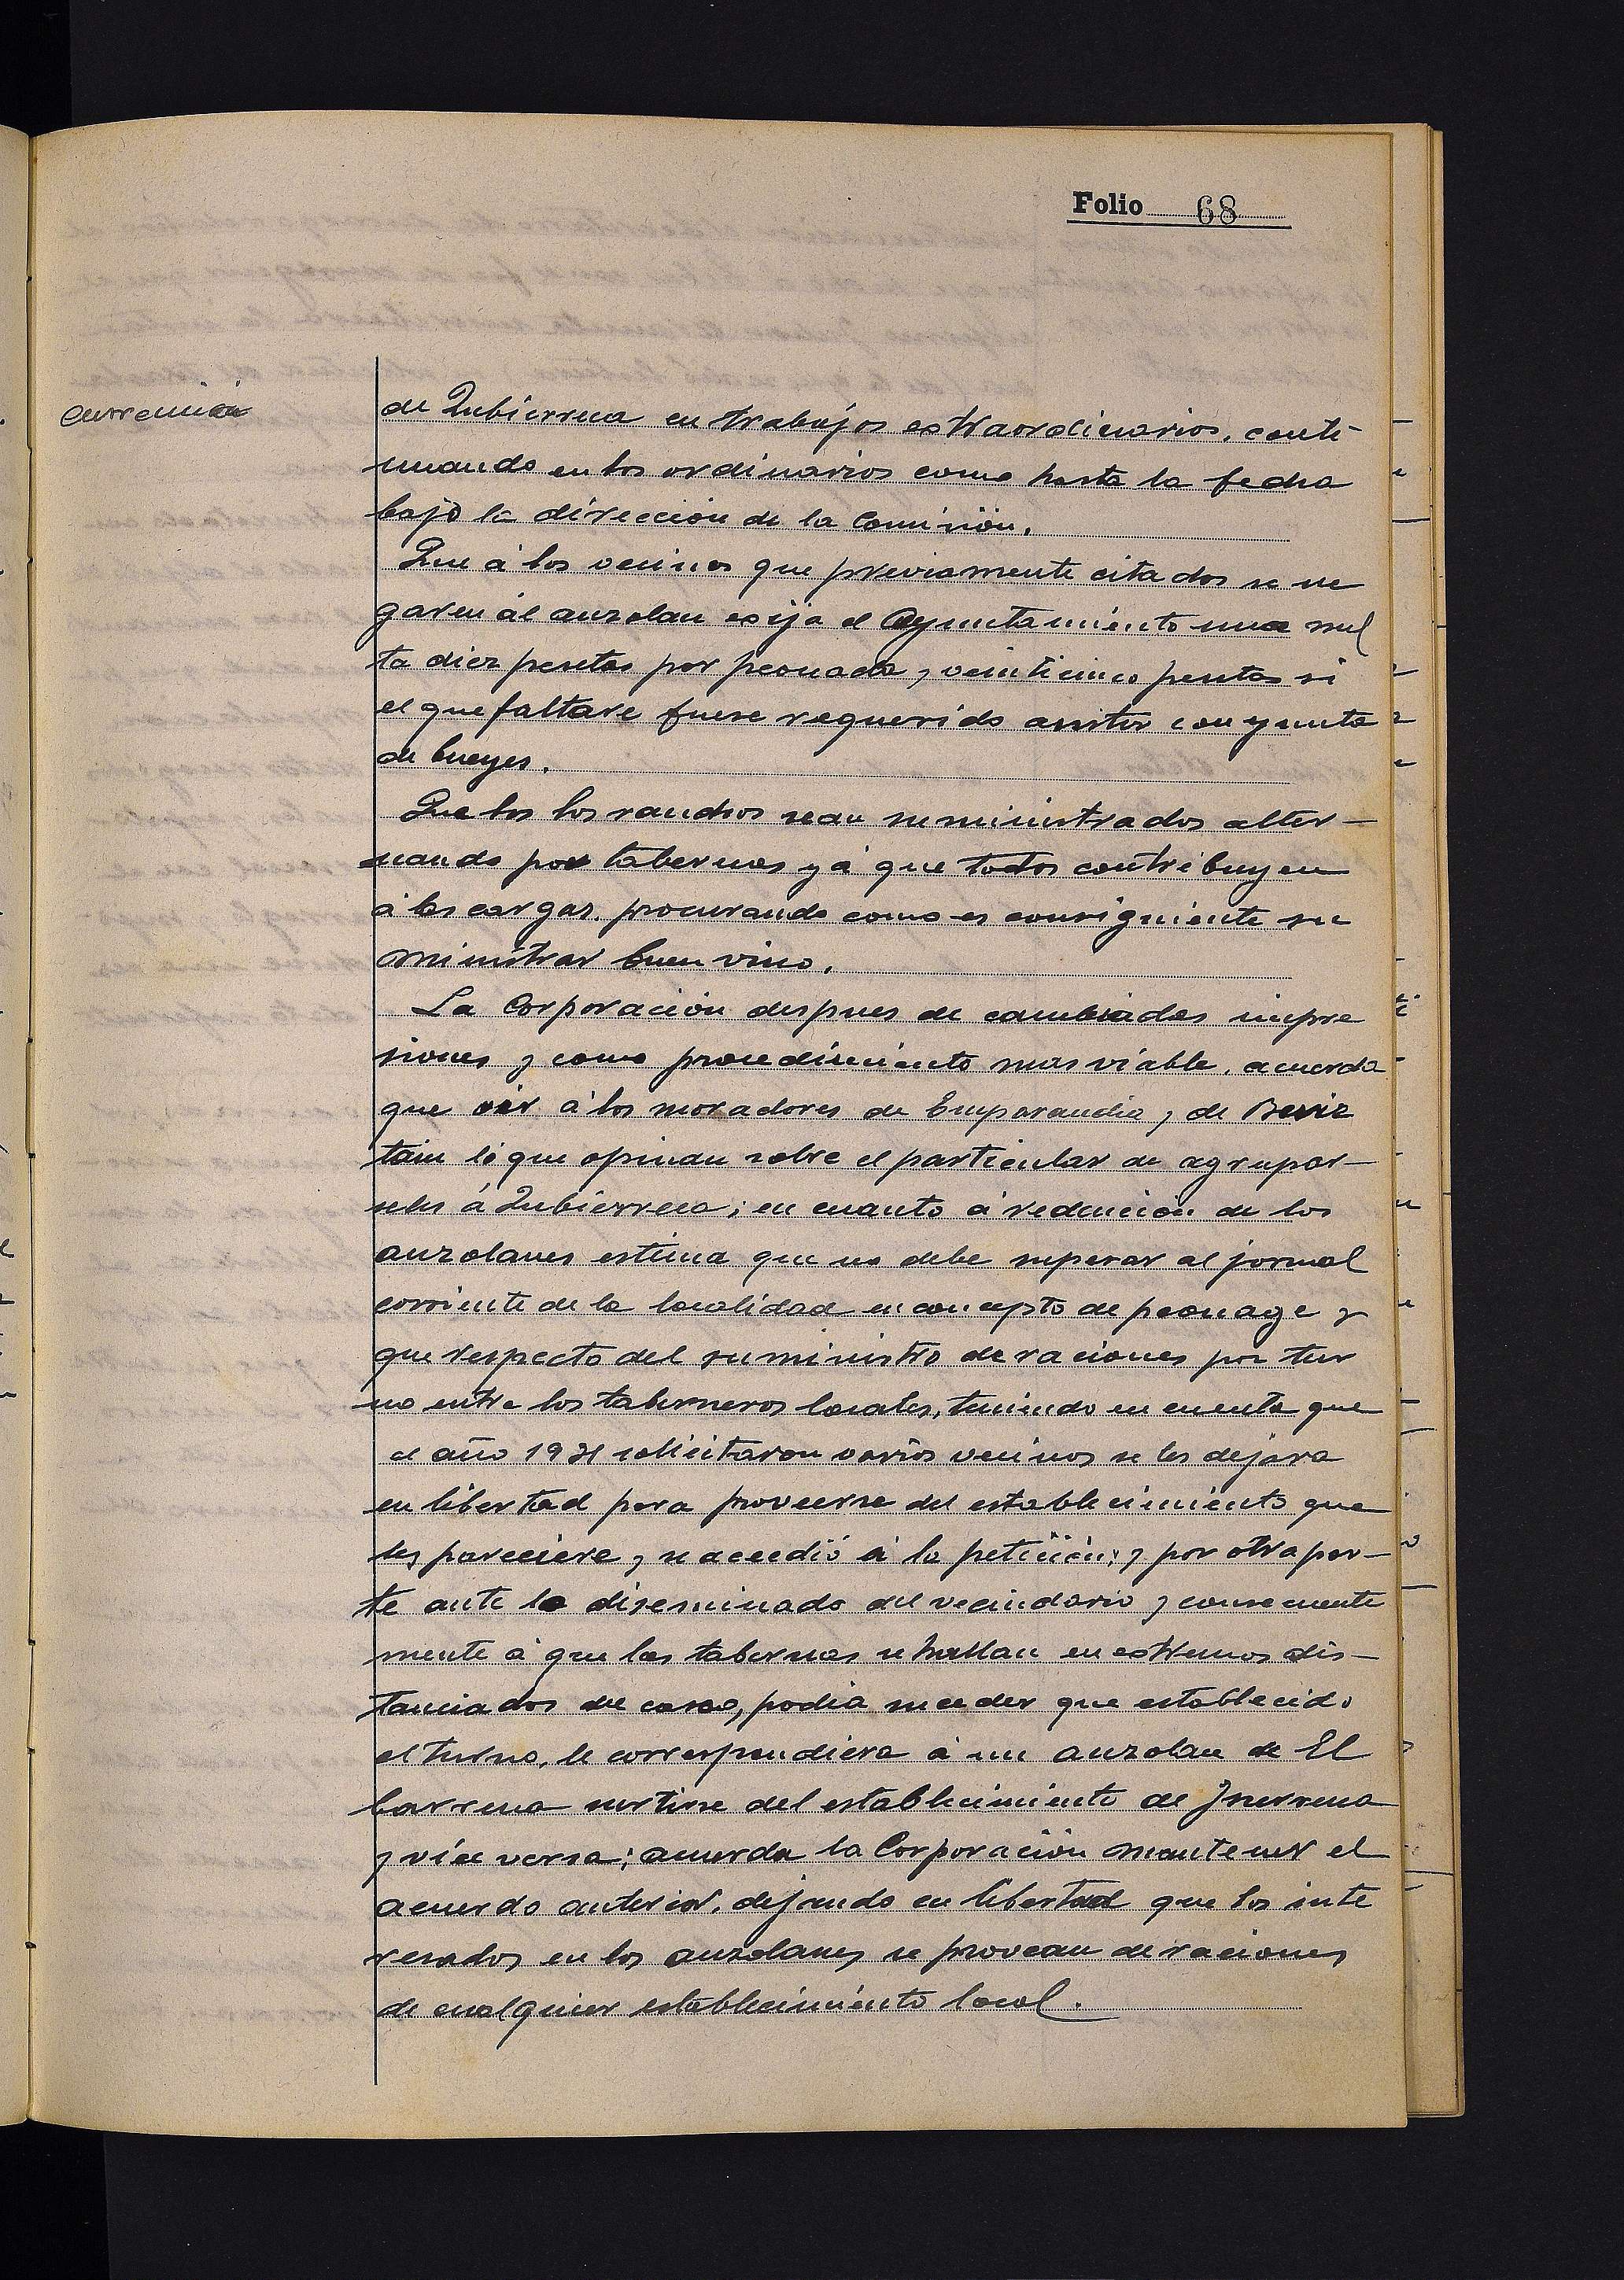 Folio 68
de Zubierrena en trabajos extraordinarios, conti
nuando en los ordinarios como hasta la fecha
bajo la dirección de la Comisión.
Que á los vecinos que previamente citados se ne
garen al auzolan exija el Ayuntamiento una mul
ta diez pesetas por peonada y veinticinco pesetas si
el que faltare fuese requerido asistir con yunta
de bueyes.
Que los los ranchos sean suministrados alter-
nando por tabernas yá que todos contribuyen
á las cargas. procurando como es consiguiente su
ministrar buen vino.
La Corporación despues de cambiadas impre
siones y como procedimiento mas viable, acuerda
que oir á los moradores de Emparandia y de
lo que opinan sobre el particular de agrupar-
seles á Zubierrena; en cuanto á redención de los
auzolanes estima que no debe superar al jornal
corriente de la localidad en concepto de peonage y
que respecto del suministro de raciones por tur
no entre los taberneros locales, teniendo en cuenta que
el año 1931 solicitaron varios vecinos se les dejara
en libertad para proveerse del establecimiento que
les pareciere y se accedió á la petición; y por otra par-
te ante lo diseminado del vecindario y consecuente
mente á que las tabernas se hallan en extremos dis-
tanciados de casco, podia suceder que establecido
el turno, le correspondiera á un auzolan de El
barrena surtirse del establecimiento de
y vice versa; acuerda la Corporación mantener el
acuerdo anterior, dejando en libertad que los inte
resados en los auzolanes se provean de raciones
de cualquier establecimiento local.